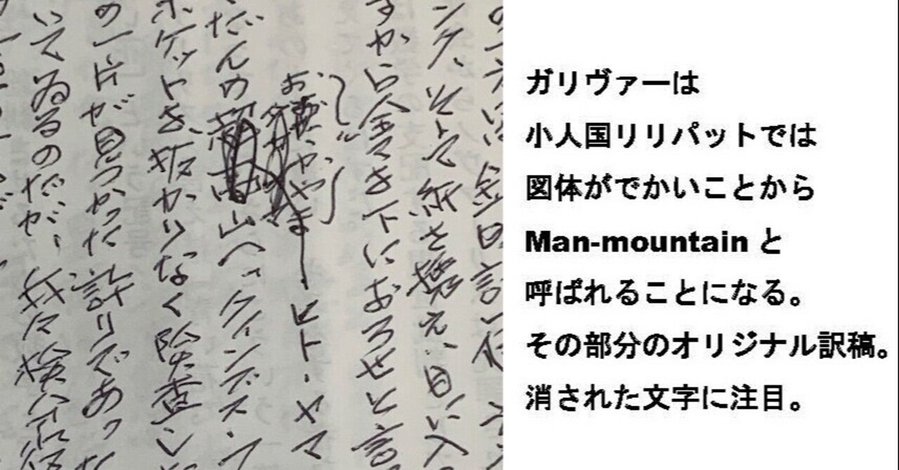 ガリヴァーは
小人国リリパットでは
図体がでかいことから
Man-mountain と
呼ばれることになる。
その部分のオリジナル訳稿。
消された文字に注目。
そして紙を携え、目に入
すから全てを下におろせと言
やまーヒト・ヤマ
山へックィンブス・フ
ポケットを抜かりなく険査し
の一片が見つかった許りであつ
いてゐるのだが、我々検分役